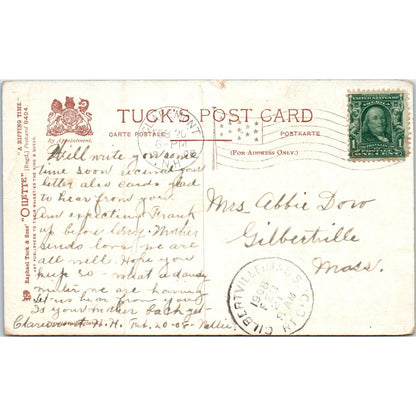 "A RIPPING TIME."
(Regd.) Postcard 9404.
Raphael Tuck & Sons' "OILETTE"
ART PUBLISHERS TO THEIR MAJESTIES THE KING & QUEEN.
By Appointment.
TUCK'S POST CARD
CARTE POSTALE
POSTKARTE
(FOR ADDRESS ONLY.)
20
6-PM
N.H.
Will write you some
time soon received your
letter also cards glad
to hear from you
Am expecting Frank
up before long. Mother
sends love we are
all well. Hope you
keep so - what a dandy
winter we are having
let us hear from you
Is your mother back yet-
Claremont N.H. Feb. 20-08- Nellie
Mrs Abbie Dow
Gilbertville
Mass.
GILBERTVILLE MASS.
1908
FEB